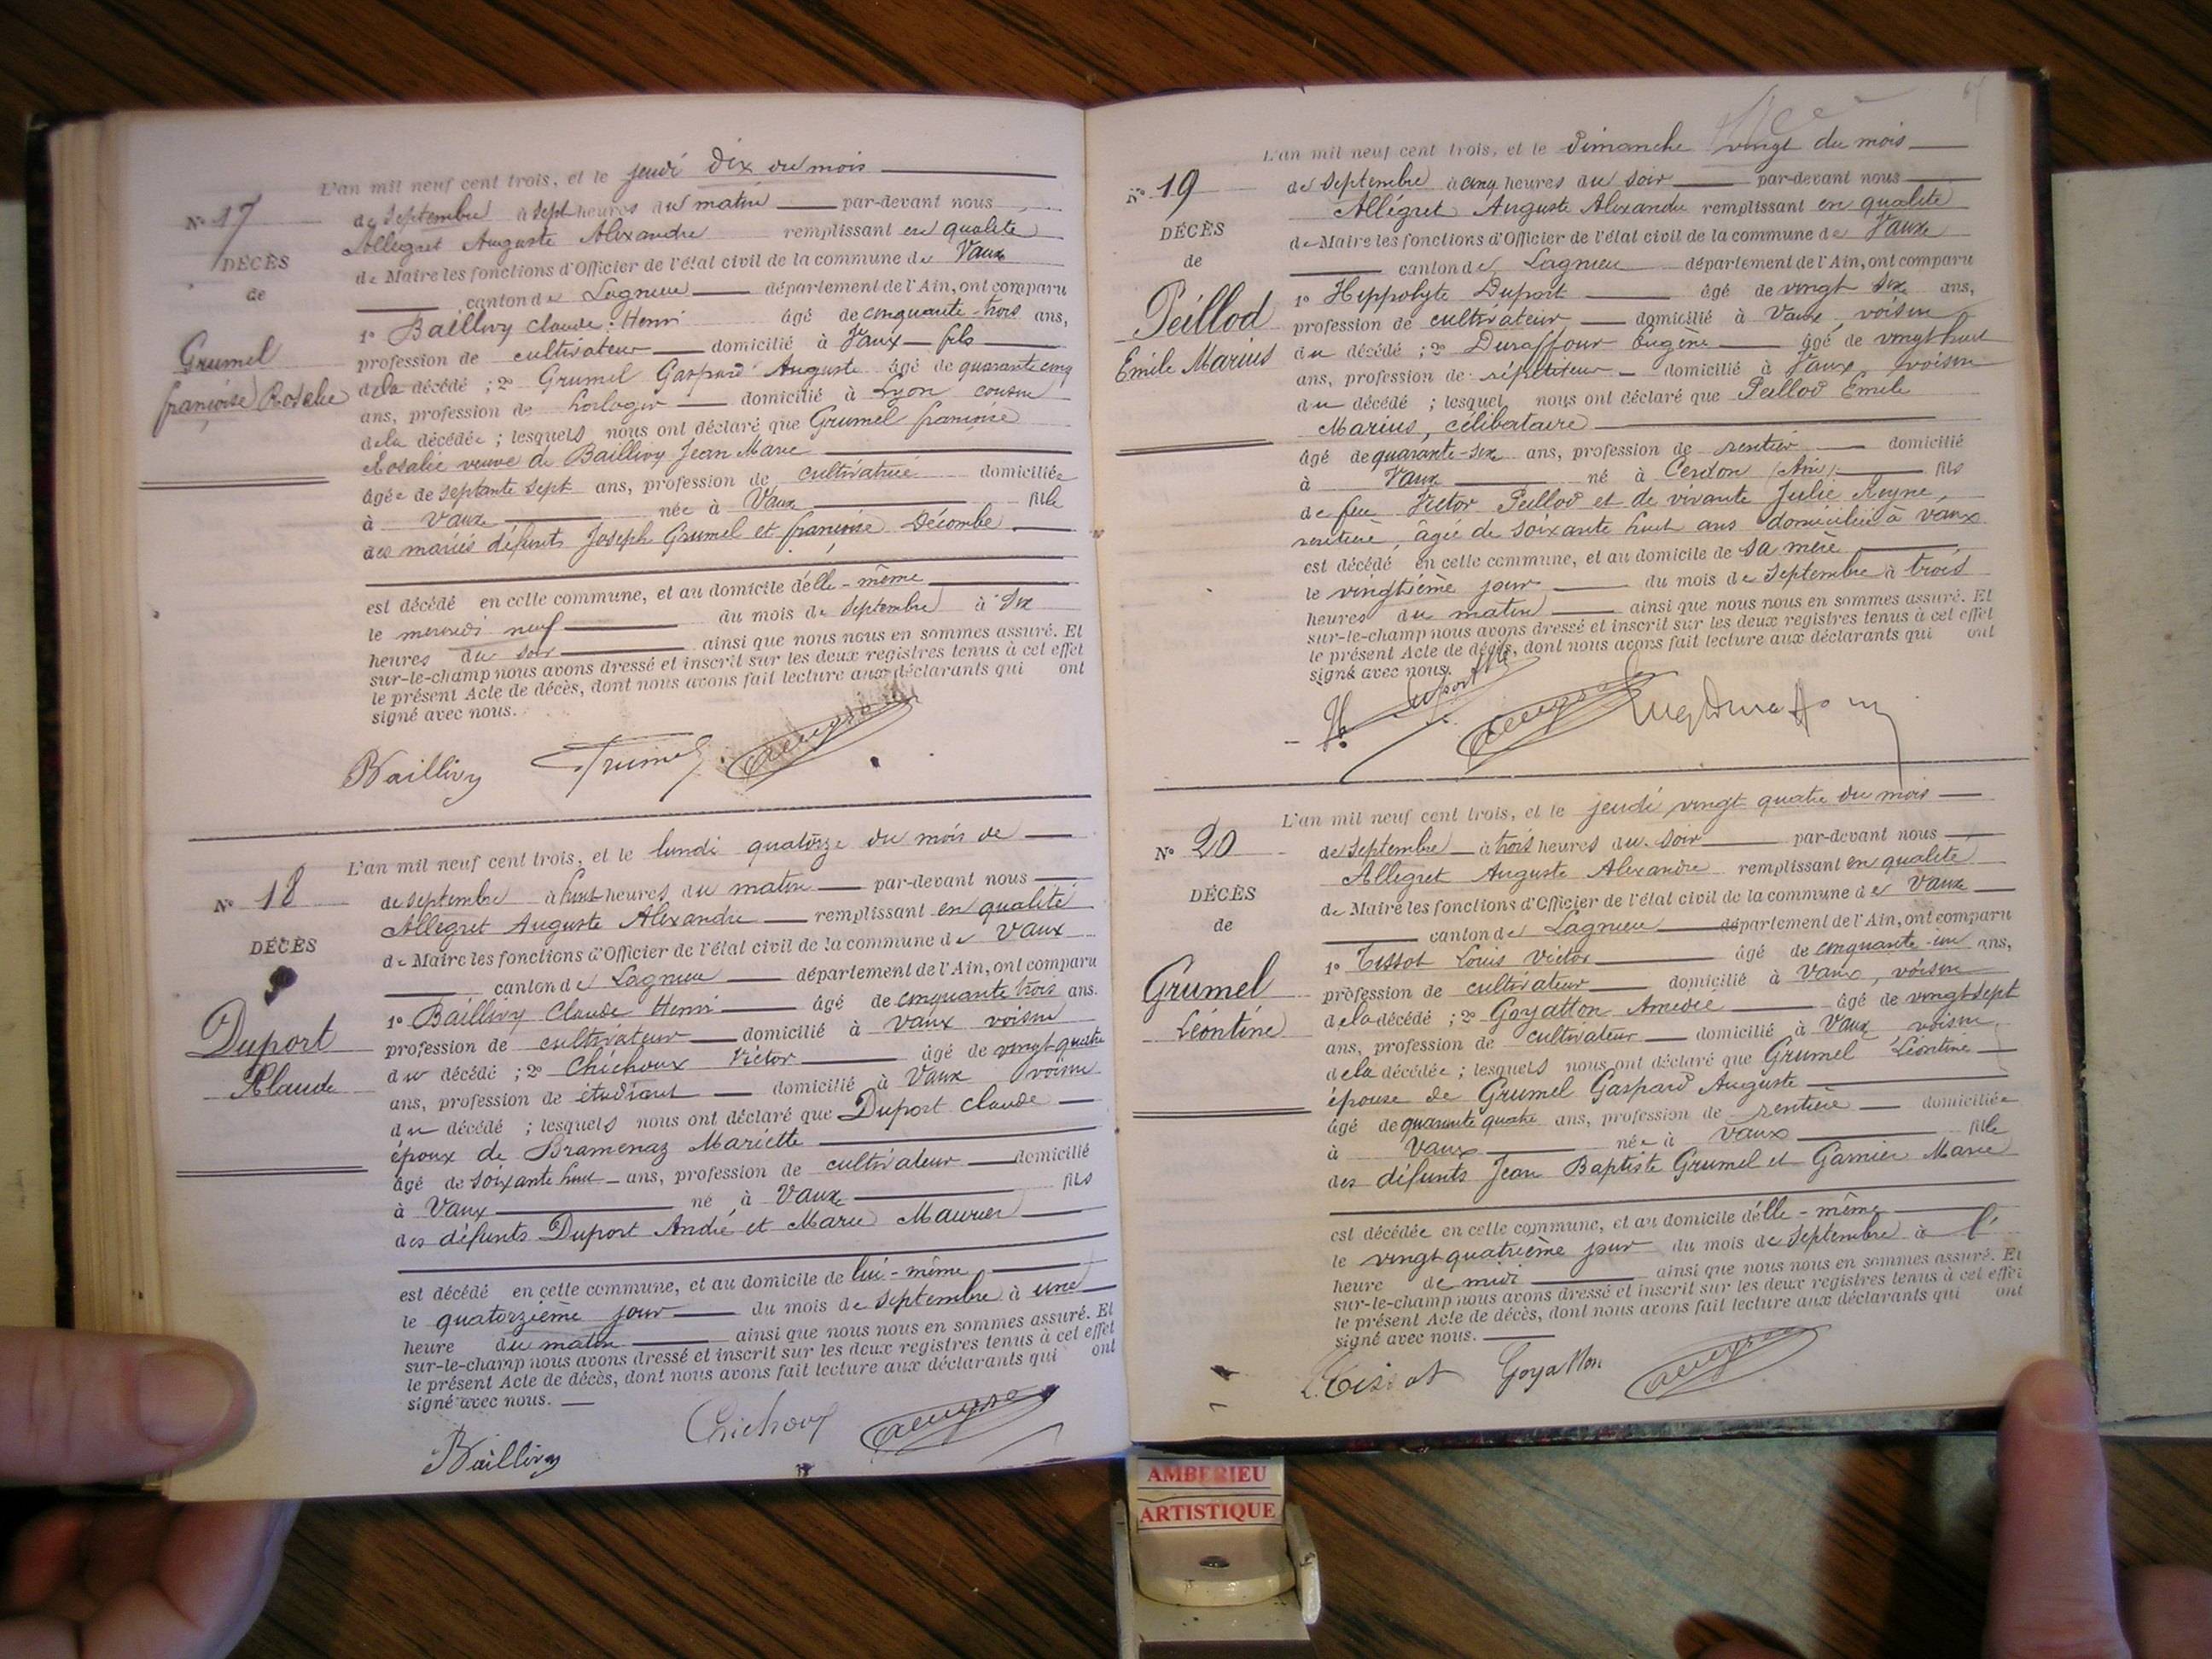 L'an mil neuf cent trois, et le jeudi dix du mois
N° 17
de Septembre à sept heures du matin par-devant nous
Allegret Auguste Alexandre remplissant en qualité
DÉCÈS
de Maire les fonctions d'Officier de l'état civil de la commune de Vaux
de
canton de Lagnieu département de l'Ain, ont comparu
1° Baillivy Claude Henri âgé de cinquante-trois ans,
Grumel
profession de cultivateur domicilié à Vaux fils
françoise Rosalie
de la décédé ; 2° Grumel Gaspard Auguste âgé de quarante cinq
ans, profession de horloger domicilié à Lyon cousin
de la décédée ; lesquels nous ont déclaré que Grumel françoise
Rosalie veuve de Baillivy Jean Marie
âgée de septante sept ans, profession de cultivatrice domiciliée
à Vaux née à Vaux fille
des mariés défunts Joseph Grumel et françoise Décombe
est décédé en cette commune, et au domicile d'elle-même
le mercredi neuf du mois de Septembre à six
heures du soir ainsi que nous nous en sommes assuré. Et
sur-le-champ nous avons dressé et inscrit sur les deux registres tenus à cet effet
le présent Acte de décès, dont nous avons fait lecture aux déclarants qui ont
signé avec nous.
Baillivy Grumel
L'an mil neuf cent trois, et le lundi quatorze du mois de
N° 18
de septembre à huit heures du matin par-devant nous
Allegret Auguste Alexandre remplissant en qualité
DÉCÈS
de Maire les fonctions d'Officier de l'état civil de la commune de Vaux
canton de Lagnieu département de l'Ain, ont comparu
1° Baillivy Claude Henri âgé de cinquante trois ans.
Duport
profession de cultivateur domicilié à Vaux voisin
Claude
du décédé ; 2° Chichoux Victor âgé de vingt-quatre
ans, profession de étudiant domicilié à Vaux voisin
du décédé ; lesquels nous ont déclaré que Duport Claude
époux de Bramenaz Mariette
âgé de soixante huit ans, profession de cultivateur domicilié
à Vaux né à Vaux fils
des défunts Duport André et Marie Maurier
est décédé en cette commune, et au domicile de lui-même
le quatorzième jour du mois de Septembre à une
heure du matin ainsi que nous nous en sommes assuré. Et
sur-le-champ nous avons dressé et inscrit sur les deux registres tenus à cet effet
le présent Acte de décès, dont nous avons fait lecture aux déclarants qui ont
signé avec nous.
Baillivy Chichoux
L'an mil neuf cent trois, et le Dimanche vingt du mois
N° 19
de Septembre à cinq heures du soir par-devant nous
Allégret Auguste Alexandre remplissant en qualité
DÉCÈS
de Maire les fonctions d'Officier de l'état civil de la commune de Vaux
de
canton de Lagnieu département de l'Ain, ont comparu
1° Hippolyte Duport âgé de vingt six ans,
Peillod
profession de cultivateur domicilié à Vaux, voisin
Emile Marius
du décédé ; 2° Duraffour Eugène âgé de vingt huit
ans, profession de répétiteur domicilié à Vaux voisin
du décédé ; lesquel nous ont déclaré que Peillod Emile
Marius, célibataire
âgé de quarante-six ans, profession de rentier domicilié
à Vaux né à Cerdon (Ain) fils
de feu Victor Peillod et de vivante Julie Reyne,
rentière, âgée de soixante huit ans domiciliée à Vaux
est décédé en cette commune, et au domicile de sa mère
le vingtième jour du mois de Septembre à trois
heures du matin ainsi que nous nous en sommes assuré. Et
sur-le-champ nous avons dressé et inscrit sur les deux registres tenus à cet effet
le présent Acte de décès, dont nous avons fait lecture aux déclarants qui ont
signé avec nous.
H. Duport
L'an mil neuf cent trois, et le jeudi vingt quatre du mois
N° 20
de Septembre à trois heures du soir par-devant nous
Allegret Auguste Alexandre remplissant en qualité
DÉCÈS
de Maire les fonctions d'Officier de l'état civil de la commune de Vaux
de
canton de Lagnieu département de l'Ain, ont comparu
1° Tissot Louis Victor âgé de cinquante-un ans,
Grumel
profession de cultivateur domicilié à Vaux, voisin
Léontine
de la décédé ; 2° Goyatton Amédée âgé de vingt sept
ans, profession de cultivateur domicilié à Vaux voisin
de la décédée ; lesquels nous ont déclaré que Grumel Léontine
épouse de Grumel Gaspard Auguste
âgé de quarante quatre ans, profession de rentière domiciliée
à Vaux née à Vaux fille
des défunts Jean Baptiste Grumel et Garnier Marie
est décédée en cette commune, et au domicile d'elle-même
le vingt quatrième jour du mois de Septembre à l'
heure de midi ainsi que nous nous en sommes assuré. Et
sur-le-champ nous avons dressé et inscrit sur les deux registres tenus à cet effet
le présent Acte de décès, dont nous avons fait lecture aux déclarants qui ont
signé avec nous.
L. Tissot Goyatton
AMBERIEU
ARTISTIQUE